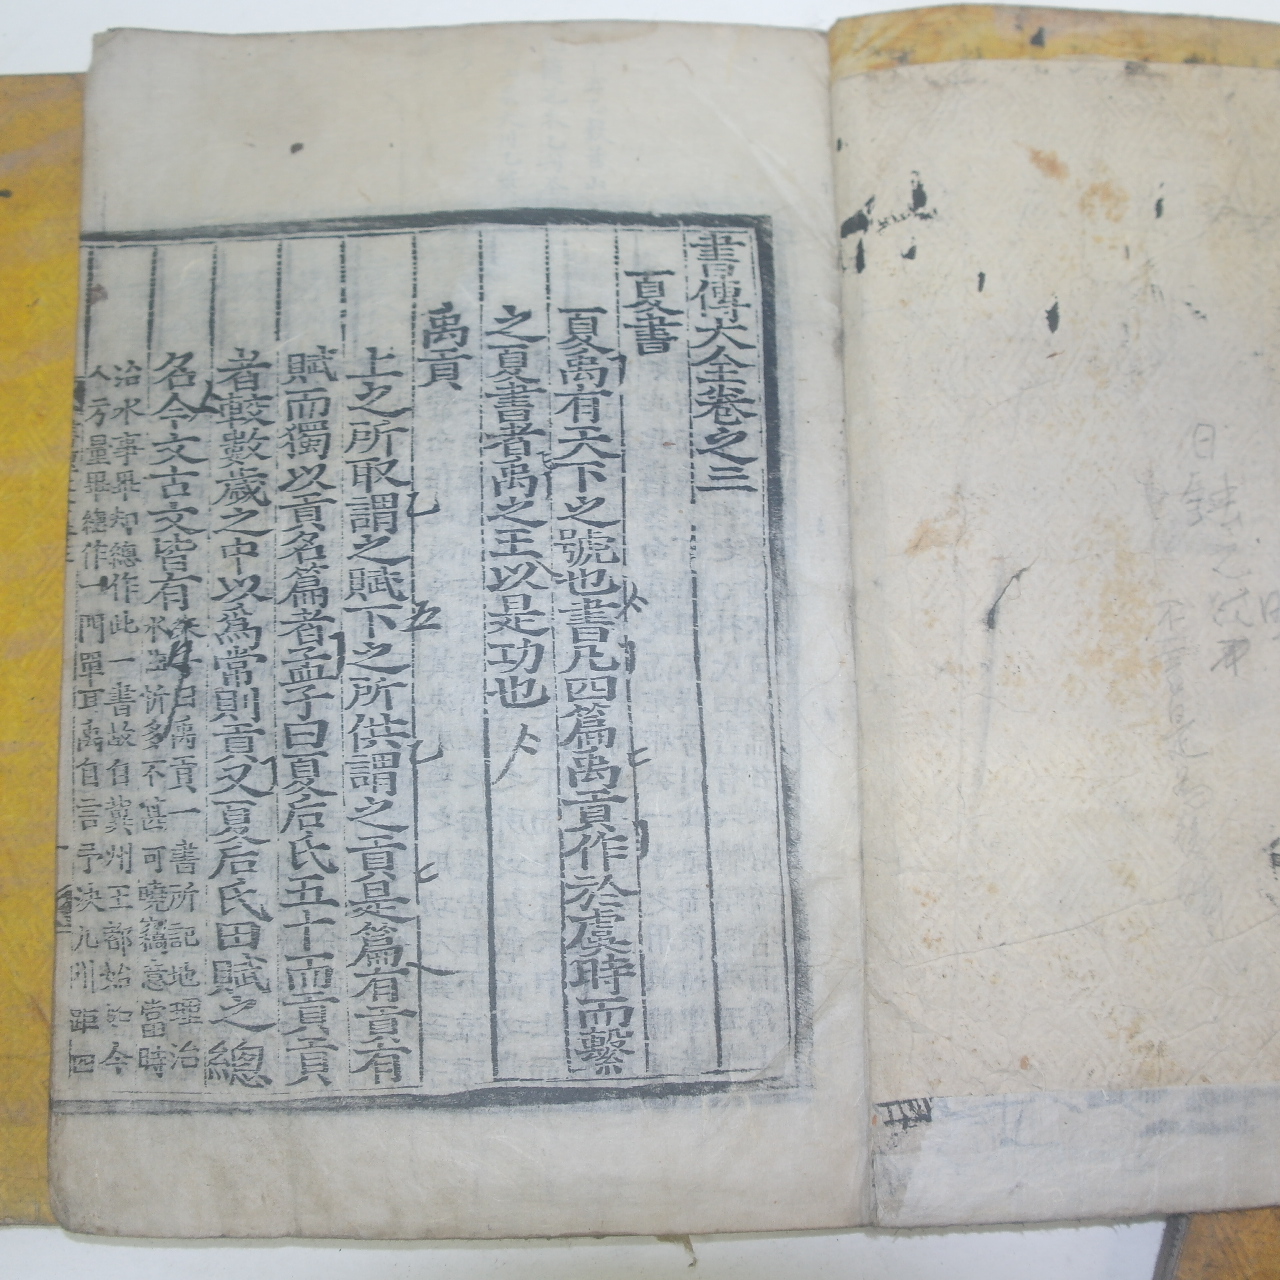 書傳大全卷之三
夏書
夏禹有天下之號也書凡四篇禹貢作於虞時而繫
之夏書者禹之王以是功也
禹貢
上之所取謂之賦下之所供謂之貢是篇有貢有
賦而獨以貢名篇者孟子曰夏后氏五十而貢貢
者較數歲之中以爲常則貢又夏后氏田賦之總
名今文古文皆有
朱子曰禹貢一書所記地理治
水土所多不甚可曉竊意當時
治水事畢却總作此一書故自冀州王都始如今
人方量畢總作一門單耳禹自言予決九川距四